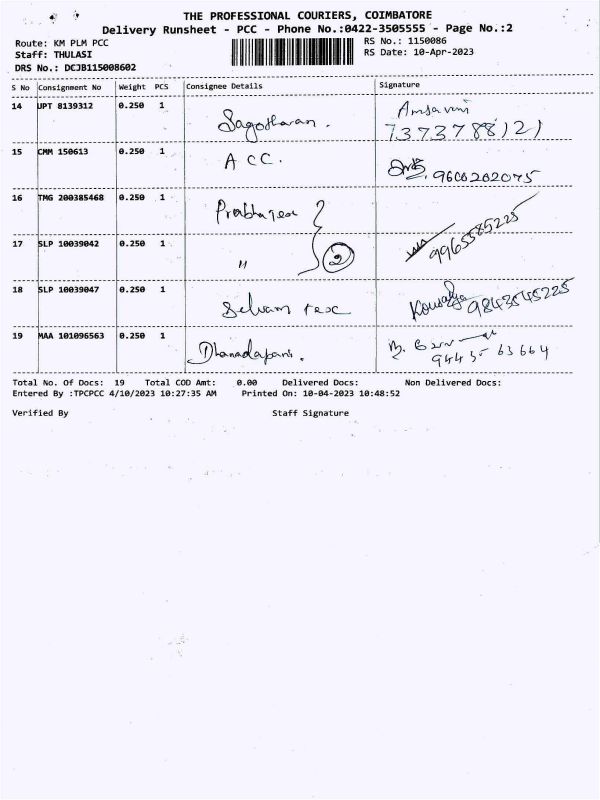 THE PROFESSIONAL COURIERS, COIMBATORE
Delivery Runsheet - PCC - Phone No.:0422-3505555 - Page No.:2
Route: KM PLM PCC
RS No.: 1150086
Staff: THULASI
RS Date: 10-Apr-2023
DRS No.: DCJB115008602
S No Consignment No Weight PCS Consignee Details Signature
14 UPT 8139312 0.250 1 Sagotharan. Amsaveni
7373788121
15 CMM 150613 0.250 1 ACC. 9600202075
16 TMG 200385468 0.250 1 Prabha tex
17 SLP 10039042 0.250 1 " 2 9965585225
18 SLP 10039047 0.250 1 Selvam tex Kousalya 9843545225
19 MAA 101096563 0.250 1 Dhanadapani. B.
94435 63664
Total No. Of Docs: 19 Total COD Amt: 0.00 Delivered Docs: Non Delivered Docs:
Entered By :TPCPCC 4/10/2023 10:27:35 AM Printed On: 10-04-2023 10:48:52
Verified By Staff Signature